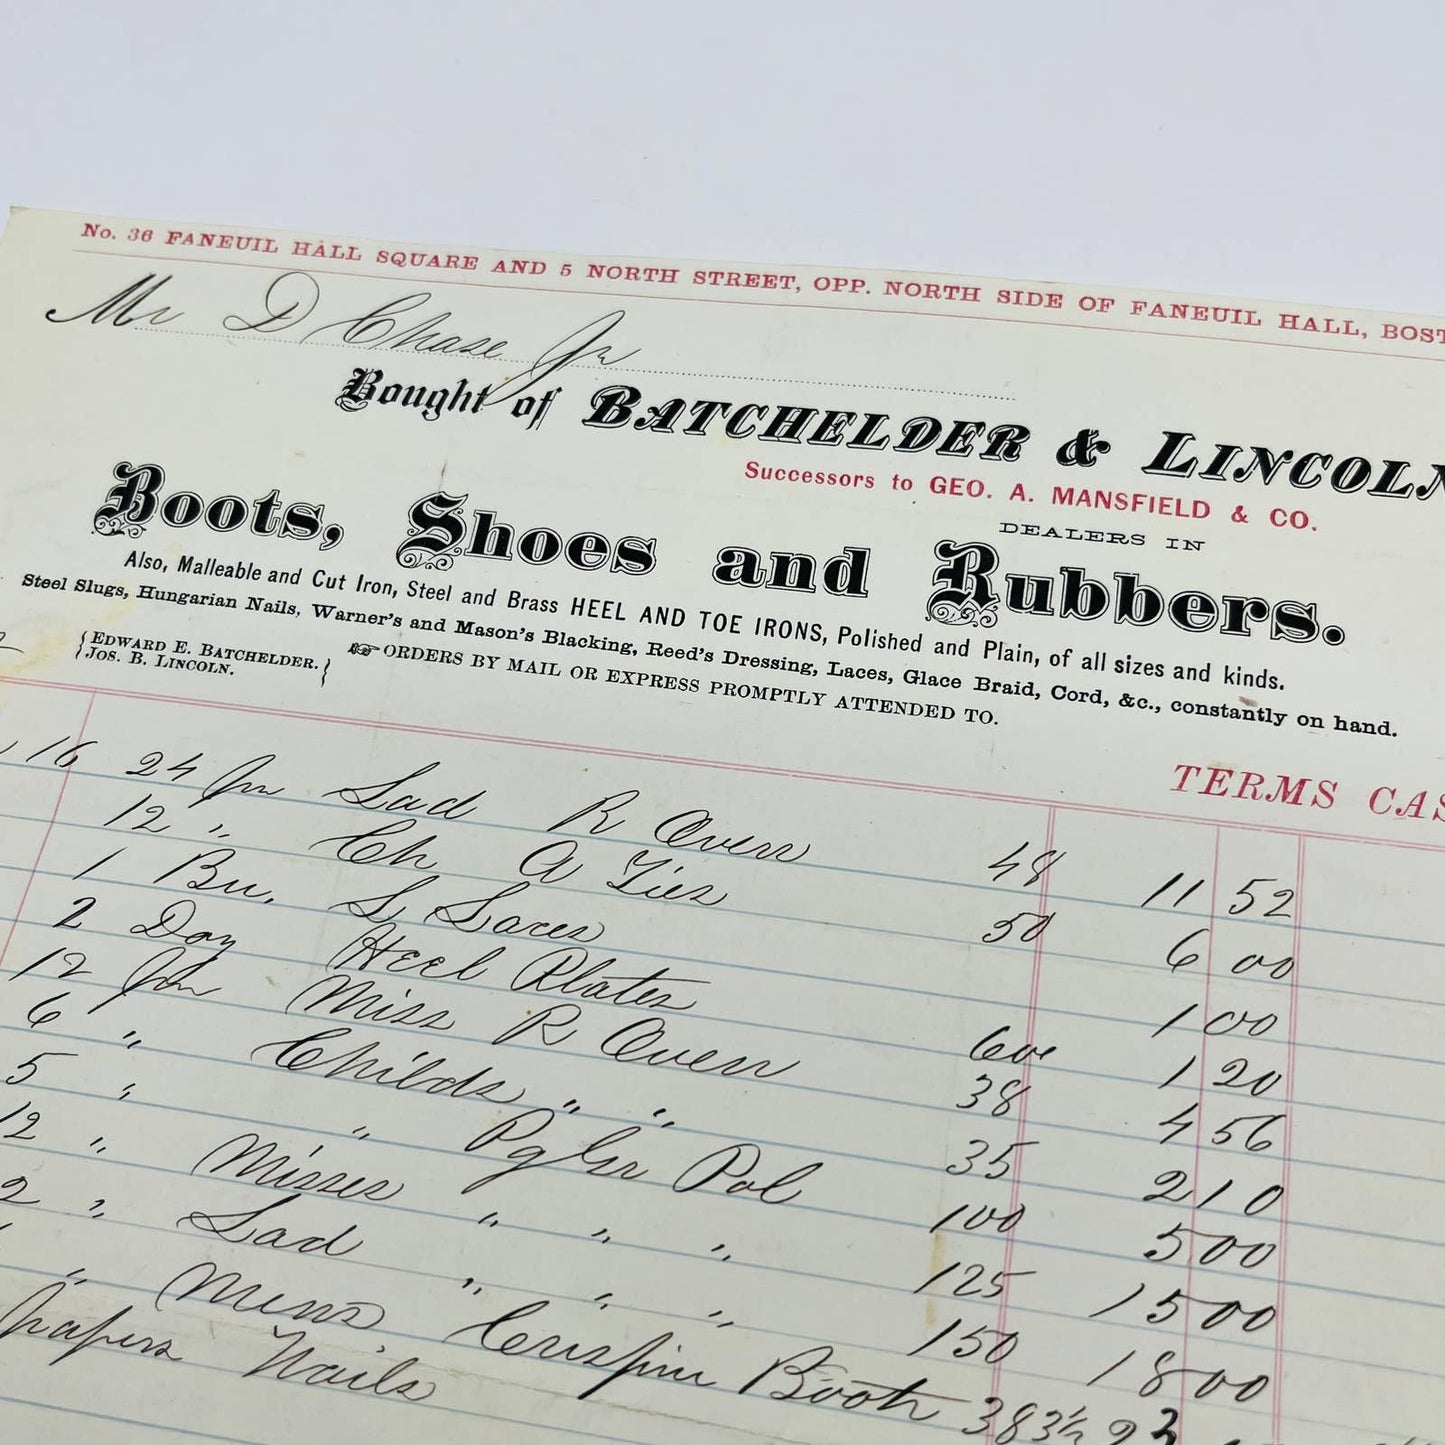 No. 36 FANEUIL HALL SQUARE AND 5 NORTH STREET, OPP. NORTH SIDE OF FANEUIL HALL, BOST
Mr D Chase Jr
Bought of BATCHELDER & LINCOLN
Successors to GEO. A. MANSFIELD & CO.
DEALERS IN
Boots, Shoes and Rubbers.
Also, Malleable and Cut Iron, Steel and Brass HEEL AND TOE IRONS, Polished and Plain, of all sizes and kinds.
Steel Slugs, Hungarian Nails, Warner's and Mason's Blacking, Reed's Dressing, Laces, Glace Braid, Cord, &c., constantly on hand.
EDWARD E. BATCHELDER.
JOS. B. LINCOLN.
ORDERS BY MAIL OR EXPRESS PROMPTLY ATTENDED TO.
TERMS CAS
16 24 Lad R Over 48 11 52
12 " Ch A Ties 50 6 00
1 Bu. L Laces 1 00
2 Doz Heel Plates 60 1 20
12 Miss R Over 38 4 56
6 " Childs " " 35 2 10
5 " " Pg Gr Pol 100 5 00
12 " Misses " " " 125 15 00
2 " Lad " " " 150 18 00
" Mens Crispin Boots 3 83½ 23
papers Nails